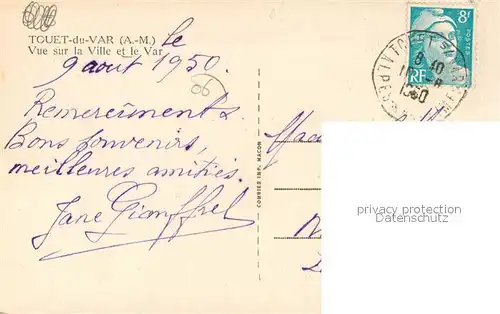 TOUET-du-VAR (A.-M.)
Vue sur la Ville et le Var
le
9 aout 1950.
06
Remerciments
Bons souvenirs,
meilleures amitiés.
Jane Gianffret
COMBIER IMP. MACON
8F
POSTES
RF
TOUET
8-10
1950
ALPES
privacy protection
Picture Postcards Collection